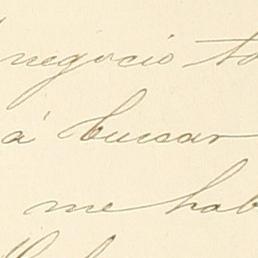 negocio to
á buscar
me hab